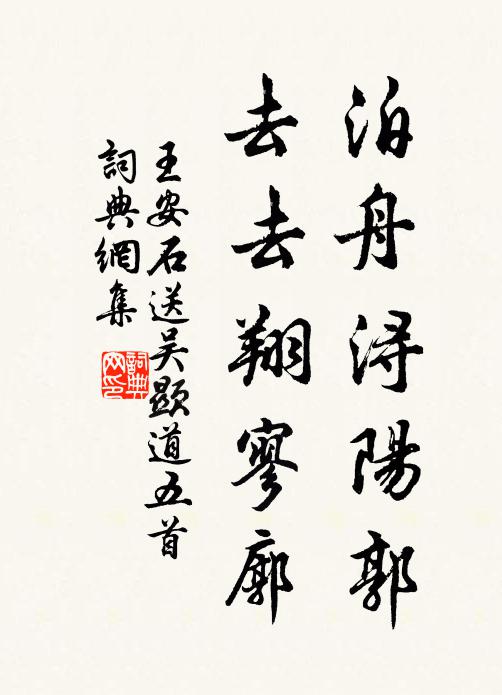 泊舟浔陽郭
去去翔寥廓
王安石送吴顯道五首
詞典網集
詞典
网印